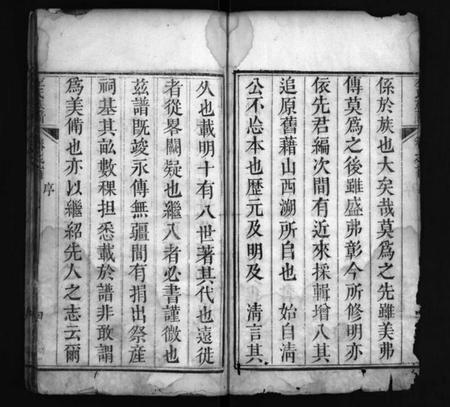 係於族也大矣哉莫爲之先雖美弗
傳莫爲之後雖盛弗彰今所修明亦
依先君編次間有近來採輯增入其
追原舊藉山西溯所自也 始自淸
公不忘本也歷元及明及 淸言其
久也載明十有八世著其代也遠徙
者從畧闕疑也繼入者必書謹微也
茲譜既竣永傳無疆間有捐出祭産
祠基其畝數稞担悉載於譜非敢謂
爲美備也亦以繼紹先人之志云爾
序